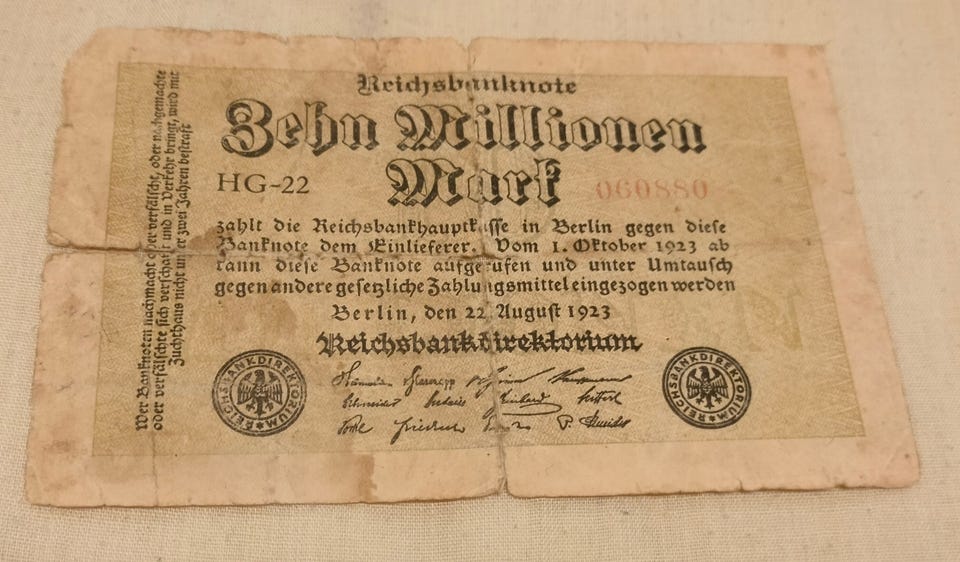 Reichsbanknote
Zehn Millionen
Mark
HG-22
060880
zahlt die Reichsbankhauptkasse in Berlin gegen diese
Banknote dem Einlieferer. Vom 1. Oktober 1923 ab
kann diese Banknote aufgerufen und unter Umtausch
gegen andere gesetzliche Zahlungsmittel eingezogen werden
Berlin, den 22. August 1923
Reichsbankdirektorium
REICHSBANKDIREKTORIUM
REICHSBANKDIREKTORIUM
Wer Banknoten nachmacht oder verfälscht, oder nachgemachte
oder verfälschte sich verschafft und in Verkehr bringt, wird mit
Zuchthaus nicht unter zwei Jahren bestraft